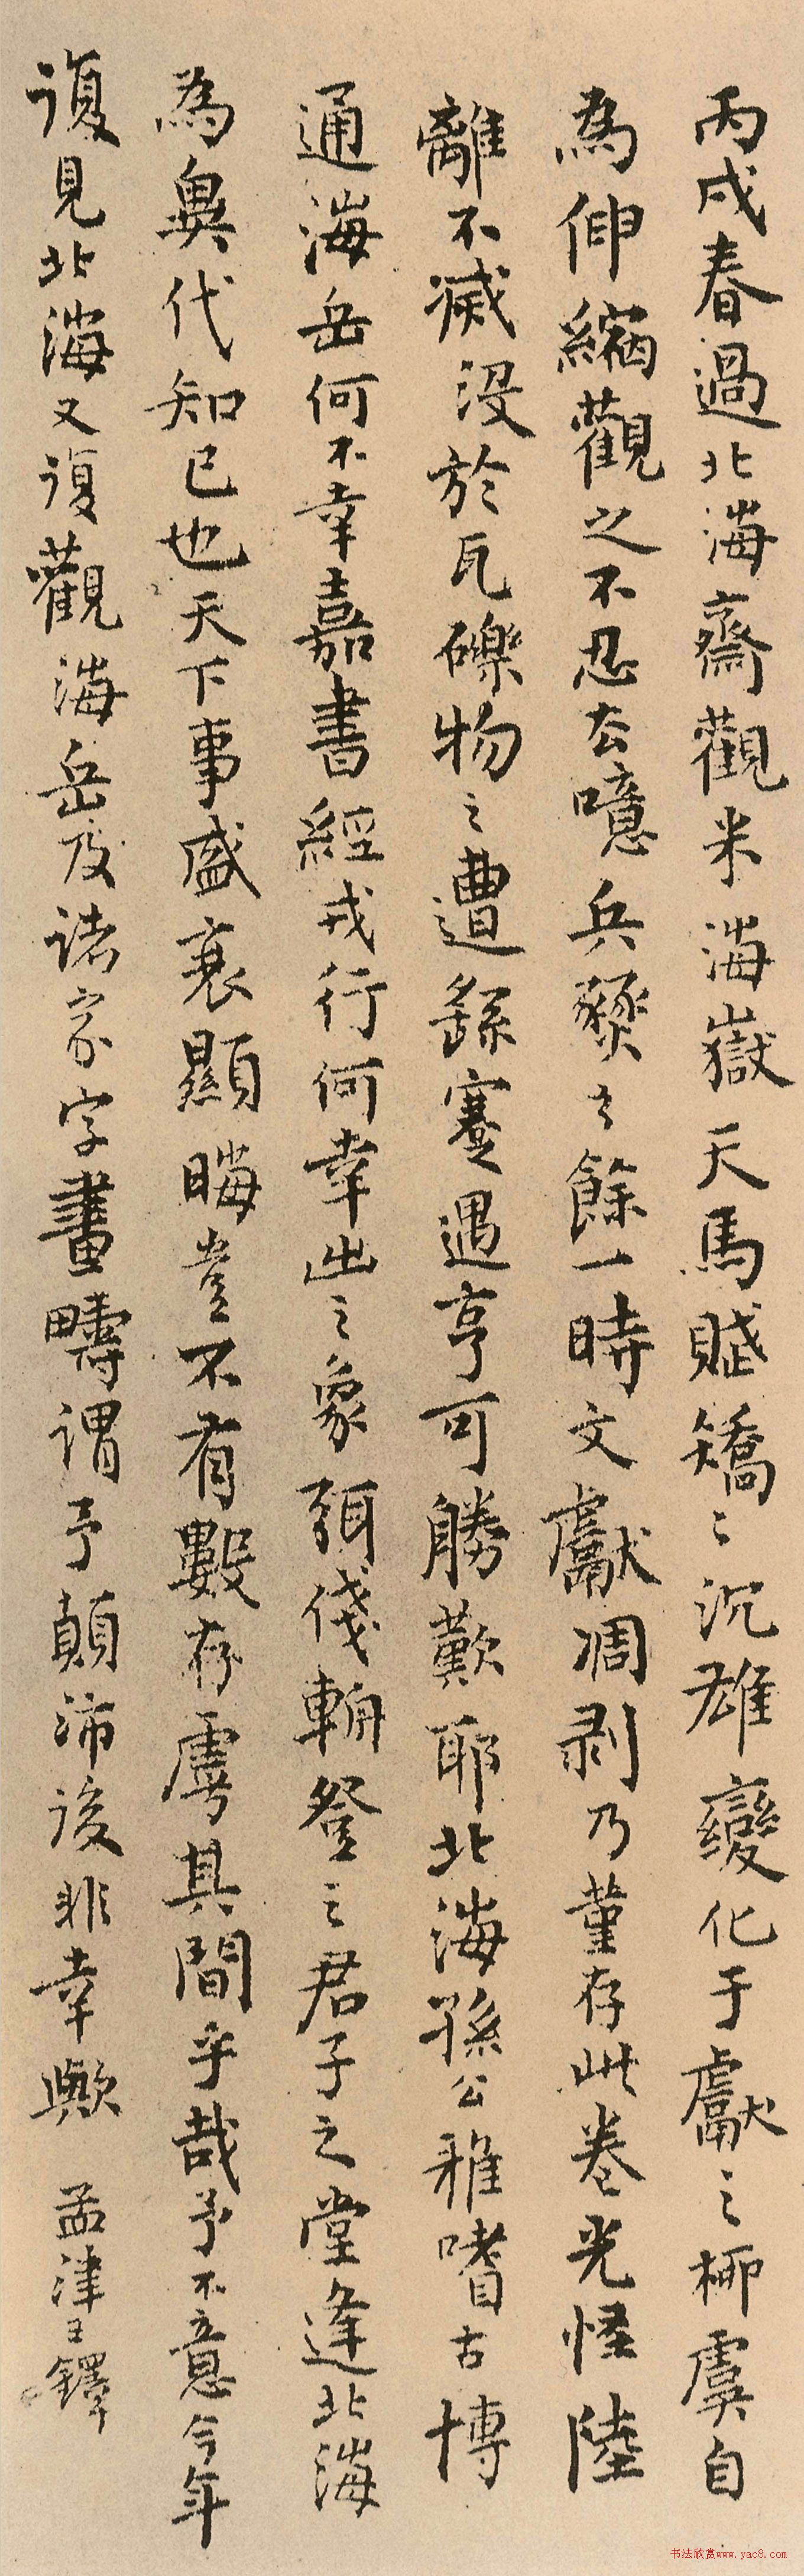 丙戌春過北海齋觀米海嶽天馬賦矯〻沉雄變化于獻之柳虞自
為伸縮觀之不忍去噫兵燹之餘一時文獻凋剥乃堇存此卷光怪陸
離不滅没於瓦礫物之遭繇蹇遇亨可勝歎耶北海孫公雅嗜古博
通海岳何不幸嘉書經戎行何幸出之象弭俴輈登之君子之堂逢北海
為異代知已也天下事盛衰顯晦豈不有數存虖其間乎哉予不意今年
復見北海又復觀海岳及諸家字畫疇謂予顛沛後非幸歟 孟津王鐸
书法欣赏www.yac8.com